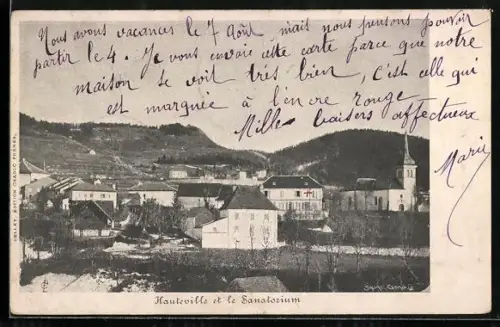 Nous avons vacances le 7 Août mais nous pensons pouvoir
partir le 4. Je vous envoie cette carte parce que notre
maison se voit très bien, C'est celle qui
est marquée à l'encre rouge
Mille baisers affectueux
Marie
Hauteville et le Sanatorium